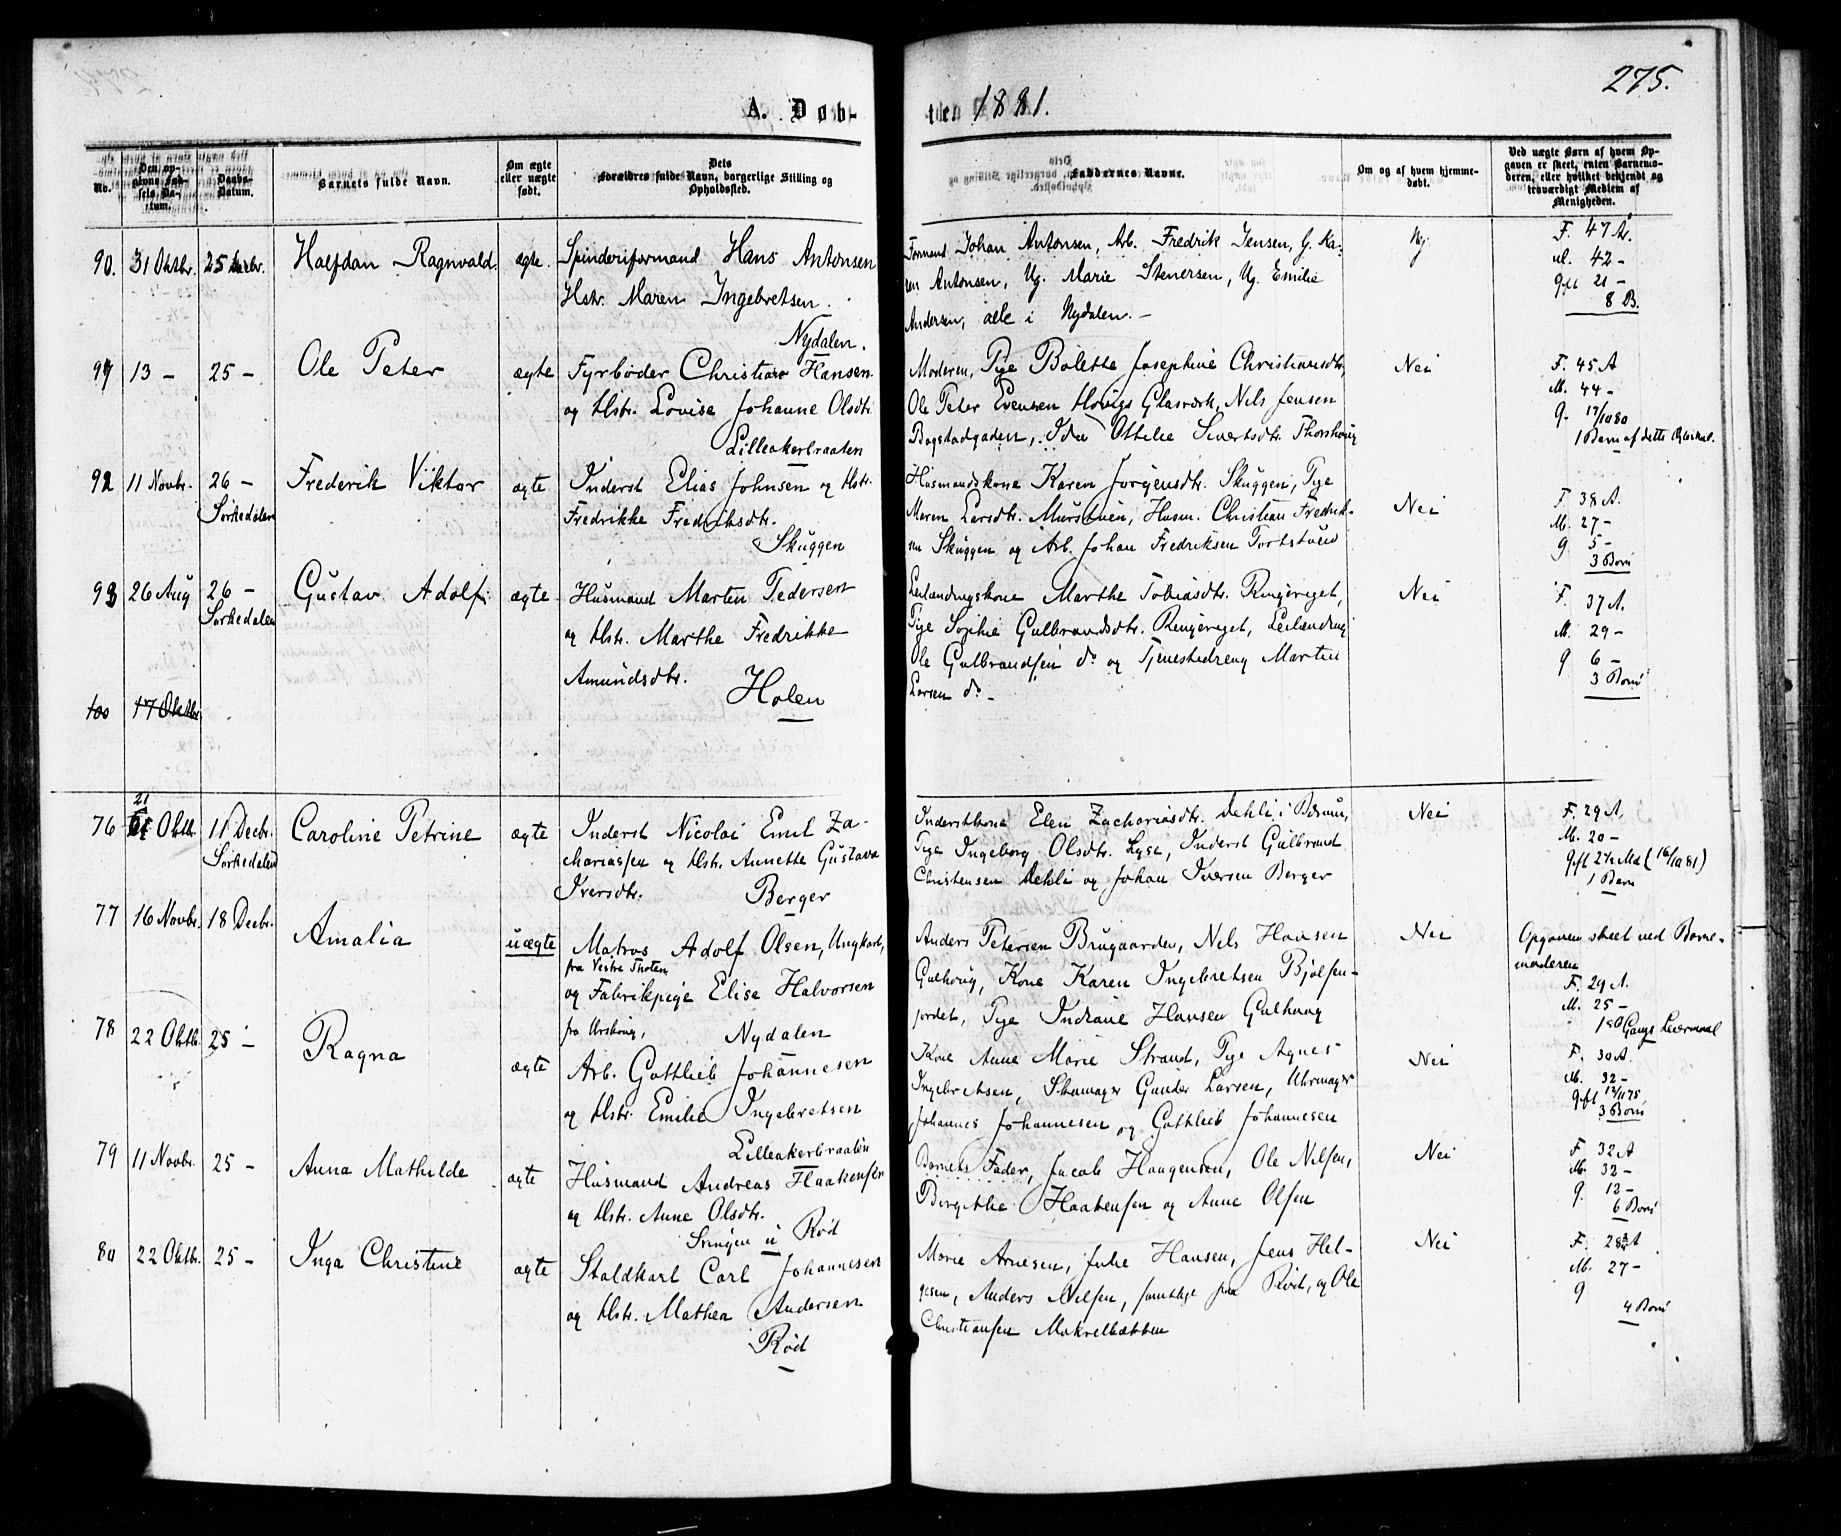 275.
A. Døb-
ten 1881.
No.
Den op-
givne Fød-
sels Da-
tum.
Daabs-
Datum.
Barnets fulde Navn.
Om ægte
eller uægte
født.
Dets
Forældres fulde Navn, borgerlige Stilling og
Opholdssted.
Faddernes Navne.
Om og af hvem hjemme-
døbt.
Ved uægte Børn af hvem Op-
gaven er skeet, enten Barnemo-
deren, eller hvilket bekjendt og
troværdigt Medlem af
Menigheden.
90. 31 Oktbr. 25 Halfdan Ragnvald. ægte.
Spinderiformand Hans Antonsen
Hstr. Maren Ingebretsen.
Nydalen.
Formand Johan Antonsen, Arb. Fredrik Jensen, G. Ka-
ren Antonsen, Ug. Marie Stenersen, Ug. Emilie
Andersen, alle i Nydalen. —
Nej
F. 47 A.
M. 42 —
gft 21 —
8 B.
91 13 — 25 — Ole Peter ægte
Fyrbøder Christian Hansen
og Hstr. Lovise Johanne Olsdtr.
Lilleakerbraaten
Moderen, Pige Bolette Josephine Christiansdtr,
Ole Peter Evensen Høvigs Glasværk, Nils Jensen
Bogstadgaden, Ida Ottelie Sivertsdtr. Thorshoug
Nei
F. 45 A
M. 44 —
g. 17/10 80
1 Barn af dette Ægteskab.
92 11 Novbr. 26 — Frederik Viktor ægte
Sørkedalen
Inderst Elias Johnsen og Hstr.
Fredrikke Fredriksdtr.
Skuggen
Husmandskone Karen Jørgensdtr. Skuggen, Pige
Maren Larsdtr. Murstuen, Husm. Christian Fredrik-
sen Skuggen og Arb. Johan Fredriksen Tortstuen
Nei
F. 38 A.
M. 27 —
g 5 —
3 Børn
93 26 Aug 26 — Gustav Adolf ægte
Sørkedalen
Husmand Marten Pedersen
og Hstr. Marthe Fredrikke
Amundsdtr.
Holen
Leilændingskone Marthe Tobiasdtr. Ringeriget,
Pige Sophie Gulbrandsdtr. Ringeriget, Leilænding
Ole Gulbrandsen do og Tjenestedreng Marten
Larsen do —
Nei
F. 37 A.
M. 29 —
g 6 —
3 Børn
100 17 Oktbr
76 21 Oktb. 11 Decbr. Caroline Petrine ægte
Sørkedalen
Inderst Nicolai Emil Za-
chariassen og Hstr. Annette Gustava
Iversdtr. Berger
Inderstkone Elen Zachariasdtr. Dehli i Bærum,
Pige Ingeborg Olsdtr. Lyse, Inderst Gulbrand
Christensen Dehli og Johan Iversen Berger
Nei
F. 29 A.
M. 20 —
gft 2½ Md (16/10 81)
1 Barn
77 16 Novbr. 18 Decbr. Amalia uægte
Matros Adolf Olsen, Ungkarl,
fra Vestre Thoten
og Fabrikpige Elise Halvorsen
fra Urskoug, Nydalen
Anders Petersen Brugaarden, Nils Hansen
Gulhoug, Kone Karen Ingebretsen Bjølsen-
jordet, Pige Indiane Hansen Gulhoug
Nei
Opgaven skeet ved Barne-
moderen
F. 29 A.
M. 25 —
1ste Gangs Leiermaal
78 22 Oktb. 25 — Ragna ægte
Arb. Gottlieb Johannesen
og Hstr. Emilie Ingebretsen
Lilleakerbraaten
Kone Anne Marie Strand, Pige Agnes
Ingebretsen, Skomager Gunder Larsen, Uhrmager
Johannes Johannesen og Gottlieb Johannesen
Nei
F. 30 A.
M. 32 —
gft 12/11 75
3 Børn
79 11 Novbr. 25 — Anna Mathilde ægte
Husmand Andreas Haakensen
og Hstr. Anne Olsdtr.
Svingen u Rød
Barnets Fader, Jacob Haagensen, Ole Nilsen,
Birgithe Haakensen og Anne Olsen
Nei
F. 32 A
M. 32 —
g. 12 —
6 Børn
80 22 Oktb. 25 — Inga Christine ægte
Staldkarl Carl Johannesen
og Hstr. Mathea Andersen
Rød
Marie Arnesen, Julie Hansen, Jens Hel-
gesen, Anders Nilsen, samtlige paa Rød, og Ole
Christiansen Makrelbækken
Nei
F. 28¾ A
M. 27 —
g
4 Børn